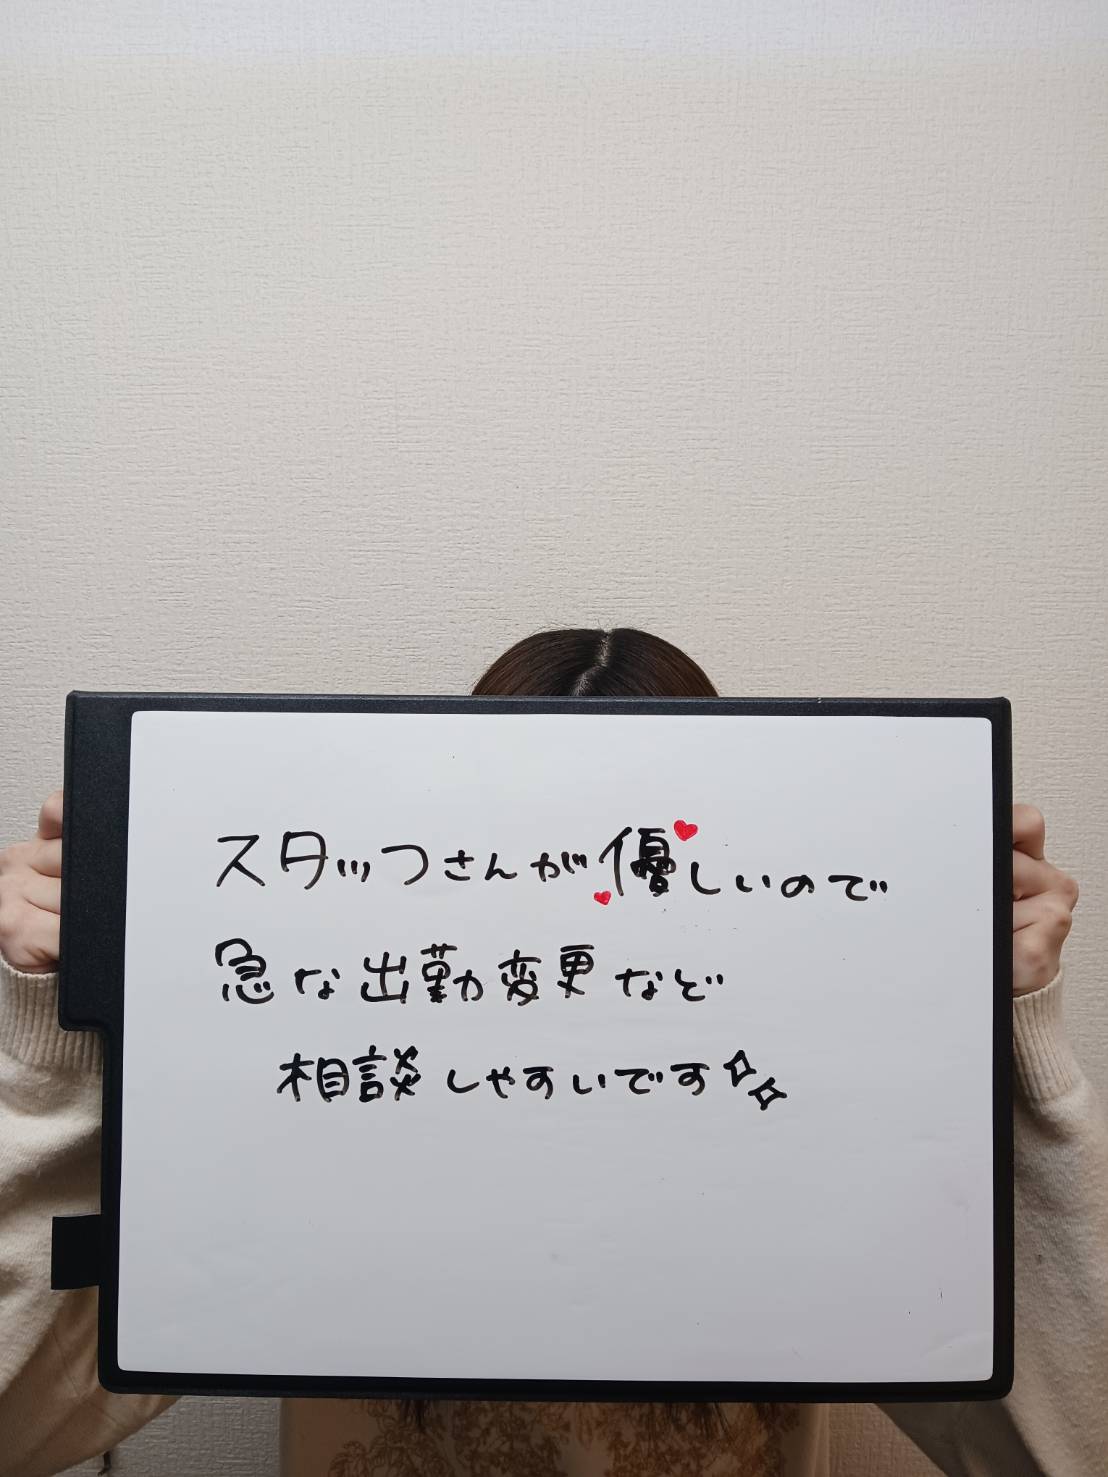 スタッフさんが優しいので
急な出勤変更など
相談しやすいです✧✧